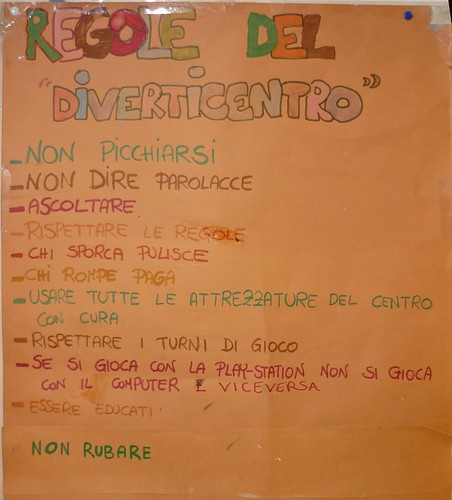 REGOLE DEL
"DIVERTICENTRO"
- NON PICCHIARSI
- NON DIRE PAROLACCE
- ASCOLTARE
- RISPETTARE LE REGOLE
- CHI SPORCA PULISCE
- CHI ROMPE PAGA
- USARE TUTTE LE ATTREZZATURE DEL CENTRO
CON CURA
- RISPETTARE I TURNI DI GIOCO
- SE SI GIOCA CON LA PLAY-STATION NON SI GIOCA
CON IL COMPUTER E VICEVERSA
- ESSERE EDUCATI
NON RUBARE